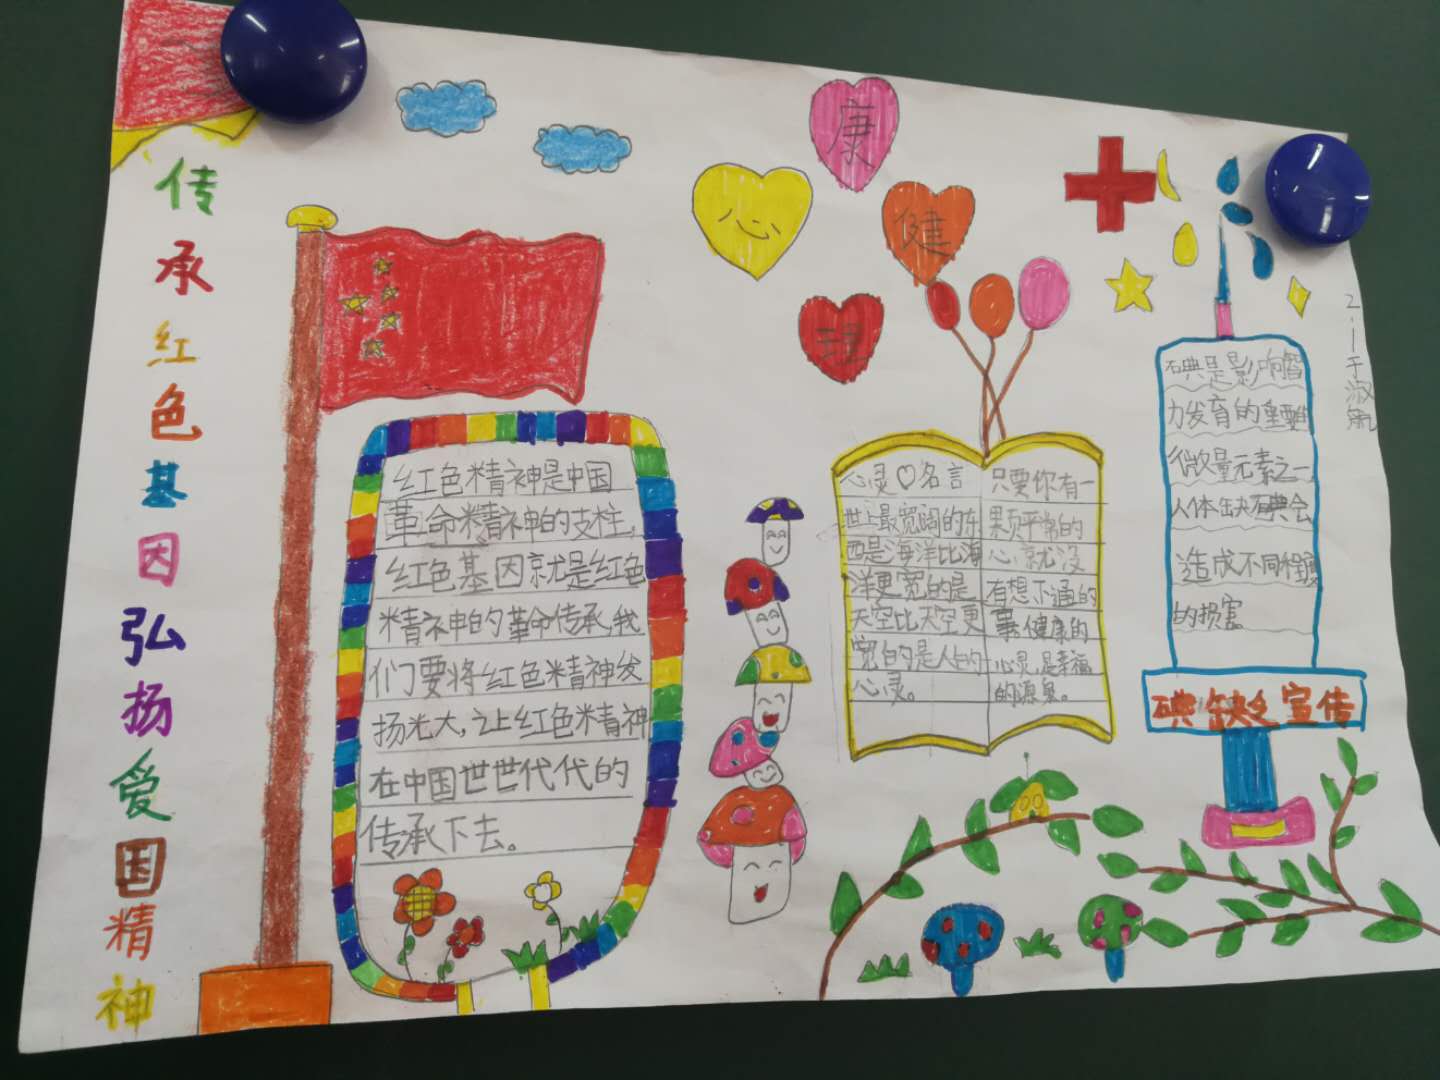 传承红色基因弘扬爱国精神
红色精神是中国
革命精神的支柱,
红色基因就是红色
精神的革命传承,我
们要将红色精神发
扬光大,让红色精神
在中国世世代代的
传承下去。
心
理
健
康
心灵♡名言
世上最宽阔的东
西是海洋比海
洋更宽的是
天空比天空更
宽的是人的
心灵。
只要你有一
颗平常的
心就没
有想不通的
事,健康的
心灵是幸福
的源泉。
碘是影响智
力发育的重要
微量元素之一,
人体缺碘会
造成不同程度
的损害
碘缺乏宣传
2.1于淑